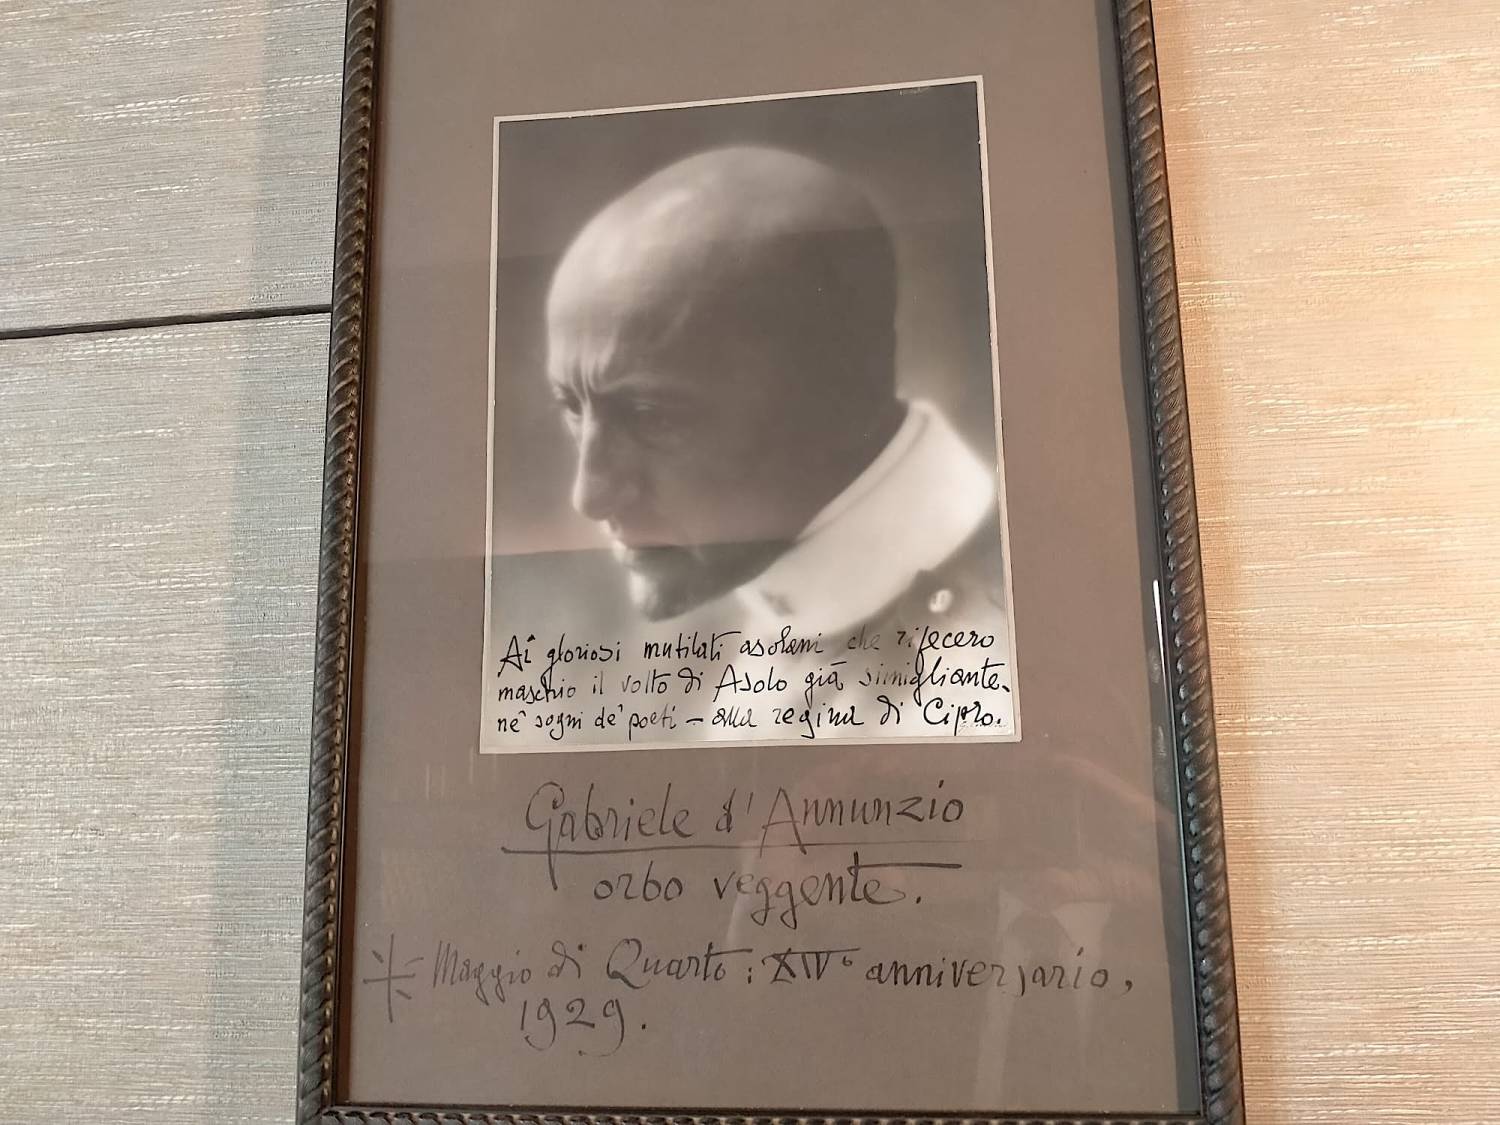 Ai gloriosi mutilati asolani che rifecero
maschio il volto di Asolo già simigliante
ne' sogni de' poeti – alla regina di Cipro.
Gabriele d'Annunzio
orbo veggente.
Maggio di Quarto: XIV° anniversario,
1929.